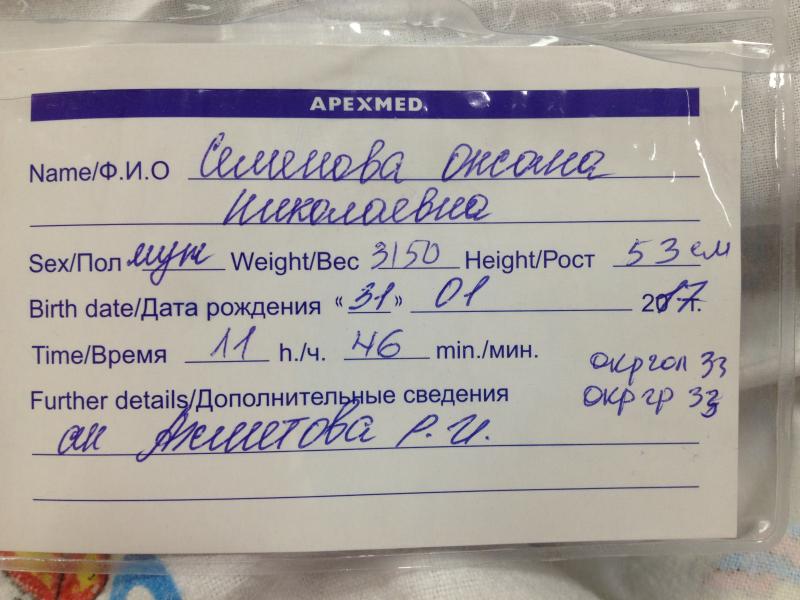 APEXMED
Name/Ф.И.О Семенова Оксана
Николаевна
Sex/Пол муж Weight/Вес 3150 Height/Рост 53 см
Birth date/Дата рождения «31» 01 2017.
Time/Время 11 h./ч. 46 min./мин.
окр гол 33
Further details/Дополнительные сведения
окр гр 33
ак Ахметова Р.И.